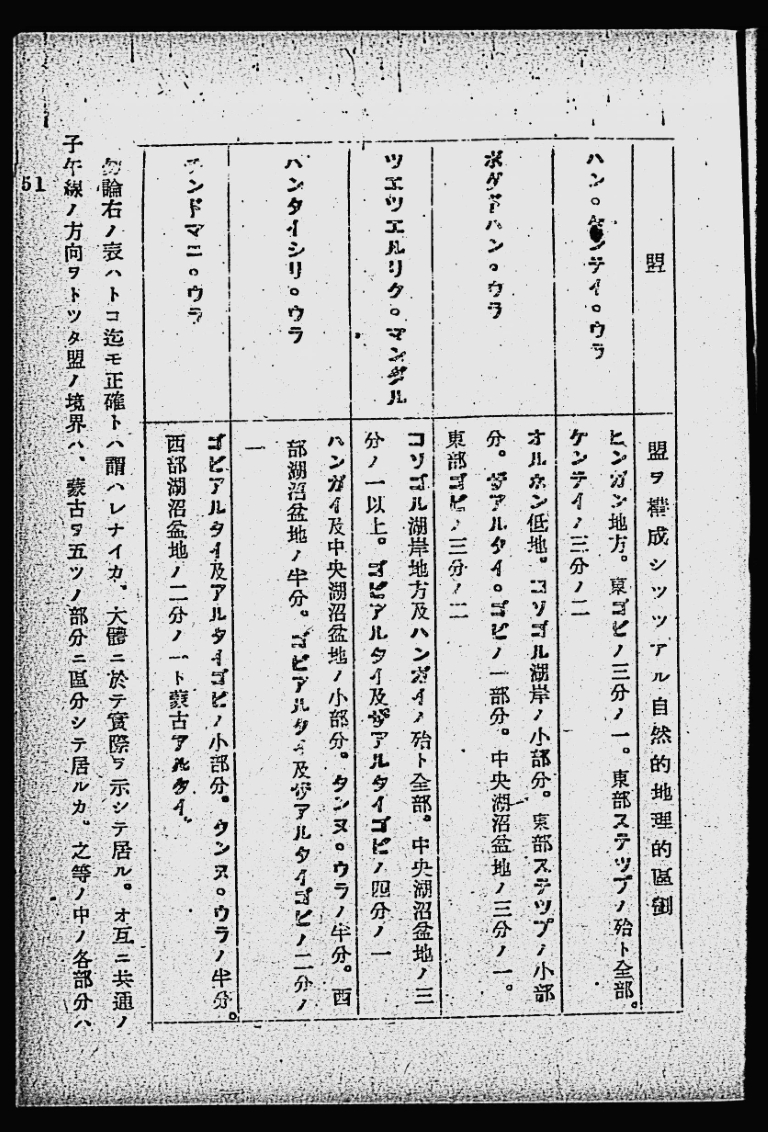 盟
盟ヲ構成シツツアル自然的地理的區劃
ハン。ケンテイ。ウラ
ヒンガン地方。東ゴビノ三分ノ一。東部ステツプノ殆ト全部。
ケンテイノ三分ノ二
ボグドハン。ウラ
オルホン低地。コソゴル湖岸ノ小部分。東部ステツプノ小部
分。ザアルタイ。ゴビノ一部分。中央湖沼盆地ノ三分ノ一。
東部ゴビノ三分ノ二
ツエツエルリク。マンダル
コソゴル湖岸地方及ハンガイノ殆ト全部。中央湖沼盆地ノ三
分ノ一以上。ゴビアルタイ及ザアルタイゴビノ四分ノ一
ハンタイシリ。ウラ
ハンガイ及中央湖沼盆地ノ小部分。タンヌ。ウラノ半分。西
部湖沼盆地ノ半分。ゴビアルタイ及ザアルタイゴビノ二分ノ
一
ンドマニ。ウラ
ゴビアルタイ及アルタイゴビノ小部分。ウンヌ。ウラノ半分。
西部湖沼盆地ノ二分ノ一ト蒙古アルタイ。
勿論右ノ表ハトコ迄モ正確トハ謂ハレナイカ、大體ニ於テ實際ヲ示シテ居ル。オ互ニ共通ノ
子午線ノ方向ヲトツタ盟ノ境界ハ、蒙古ヲ五ツノ部分ニ區分シテ居ルカ。之等ノ中ノ各部分ハ
51